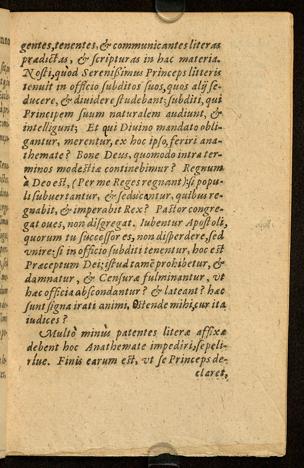 gentes, tenentes, & communicantes literas
prædictas, & scripturas in hac materia.
Nosti, quòd Serenissimus Princeps litteris
tenuit in officio subditos suos, quos alij se-
ducere, & diuidere studebant; subditi, qui
Principem suum naturalem audiunt, &
intelligunt; Et qui Diuino mandato obli-
gantur, merentur, ex hoc ipso, feriri ana-
themate? Bone Deus, quomodo intra ter-
minos modestia continebimur? Regnum
à Deo est, (Per me Reges regnant) si popu-
li subuertantur, & seducantur, quibus re-
gnabit, & imperabit Rex? Pastor congre-
gat oues, non disgregat. Iubentur Apostoli,
quorum tu successor es, non disperdere, sed
vnire: si in officio subditi tenentur, hoc est
Præceptum Dei; istud tamẽ prohibetur, &
damnatur, & Censuræ fulminantur, vt
hæc officia abscondantur? & lateant? hæc
sunt signa irati animi. Ostende mihi, cur ita
iudices?
Multò minùs patentes literæ affixæ
debent hoc Anathemate impediri, sepeli-
rìue. Finis earum est, vt se Princeps de-
claret,